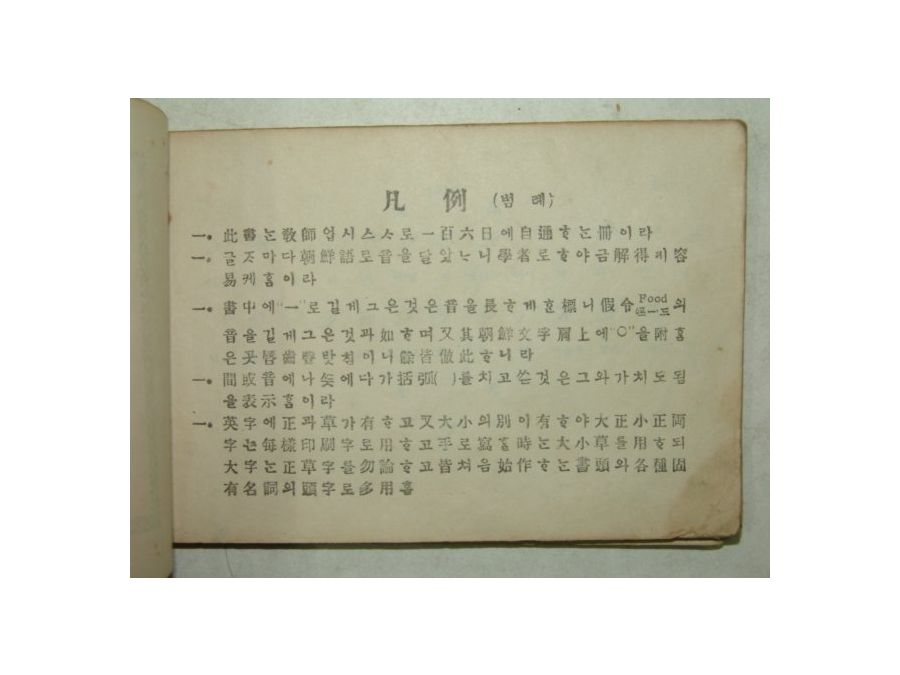 凡例 (범례)
一. 此書ᄂᆞᆫ 敎師업시스ᄉᆞ로一百六日에自通ᄒᆞᄂᆞᆫ冊이라
一. 글ᄌᆞ마다朝鮮語로音을달앗ᄂᆞ니學者로ᄒᆞ야금解得키容
易케홈이라
一. 書中에"一"로길게그은것은音을長ᄒᆞ게ᄒᆞᆫ標니假令Food의
音을길게그은것과如ᄒᆞ며又其朝鮮文字肩上에"○"을附홈
은곳唇齒聲밧침이니餘皆倣此ᄒᆞ니라
一. 間或音에나ᄯᅳᆺ에다가括弧( )를치고쓴것은그와가치도됨
을表示홈이라
一. 英字에正과草가有ᄒᆞ고又大小의別이有ᄒᆞ야大正小正兩
字ᄂᆞᆫ每樣印刷字로用ᄒᆞ고手로寫ᄒᆞᆯ時ᄂᆞᆫ大小草를用ᄒᆞ되
大字ᄂᆞᆫ正草字를勿論ᄒᆞ고皆쳐음始作ᄒᆞᄂᆞᆫ書頭와各種固
有名詞의頭字로多用홈